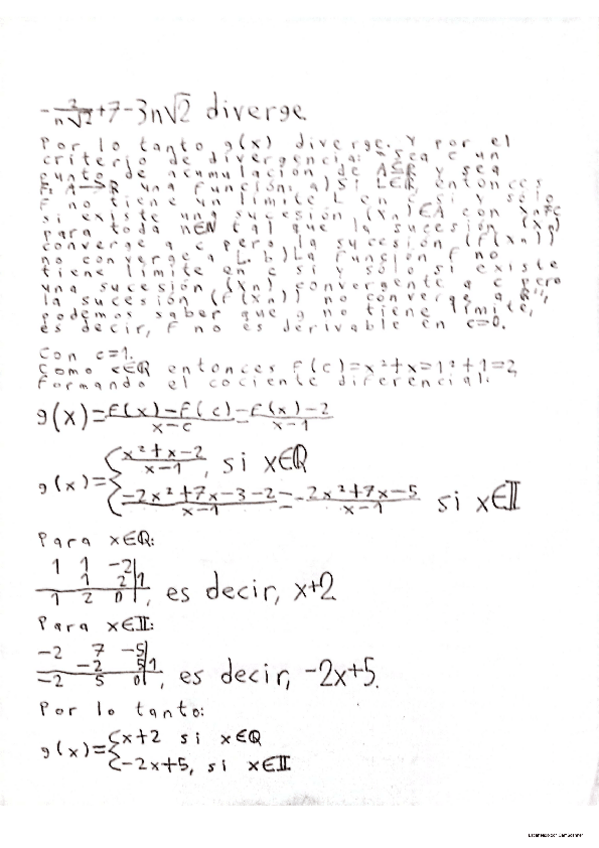 -3/(n√2)+7-3n√2 diverge.
Por lo tanto g(x) diverge. Y por el
criterio de divergencia: "Sea c un
punto de acumulación de A⊆R y sea
F: A→R una función: a) Si L∈R, entonces
f no tiene un límite L en c si y sólo
si existe una sucesión (Xn)∈A con Xn≠c
para toda n∈N tal que la sucesión (Xn)
converge a c pero la sucesión (f(Xn))
no converge a L. b) La función f no
tiene límite en c si y sólo si existe
una sucesión (Xn) convergente a c pero
la sucesión (f(Xn)) no converge a R",
podemos saber que g no tiene límite,
es decir, f no es derivable en c=0.
Con c=1.
Como c∈Q entonces f(c)=x²+x=1²+1=2,
Formando el cociente diferencial:
g(x)=(f(x)-f(c))/(x-c)=(f(x)-2)/(x-1)
g(x)={(x²+x-2)/(x-1), si x∈Q
{(-2x²+7x-3-2)/(x-1)=(-2x²+7x-5)/(x-1) si x∈𝕀
Para x∈Q:
1 1 -2|
1 2|1
1 2 0|, es decir, x+2
Para x∈𝕀:
-2 7 -5|
-2 5|1
-2 5 0|, es decir, -2x+5.
Por lo tanto:
g(x)={x+2 si x∈Q
{-2x+5, si x∈𝕀